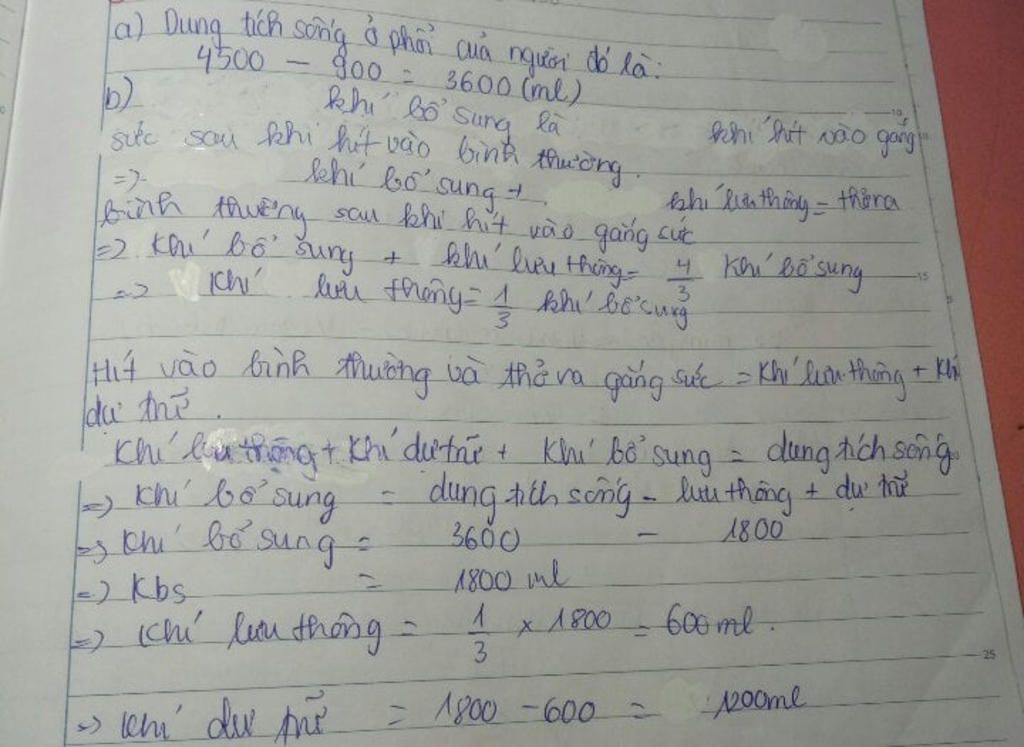 a) Dung tích sống ở phổi của người đó là:
4500 - 900 = 3600 (ml)
b) khí bổ sung là khí hít vào gắng
sức sau khi hít vào bình thường.
=> khí bổ sung + khí lưu thông = thở ra
bình thường sau khi hít vào gắng sức
=> Khí bổ sung + khí lưu thông = 4/3 Khí bổ sung
=> Khí lưu thông = 1/3 khí bổ sung
Hít vào bình thường và thở ra gắng sức = Khí lưu thông + Khí
dự trữ.
Khí lưu thông + Khí dự trữ + Khí bổ sung = dung tích sống
=> Khí bổ sung = dung tích sống - lưu thông + dự trữ
=> Khí bổ sung = 3600 - 1800
=> Kbs = 1800 ml
=> Khí lưu thông = 1/3 x 1800 = 600 ml.
=> Khí dự trữ = 1800 - 600 = 1200ml